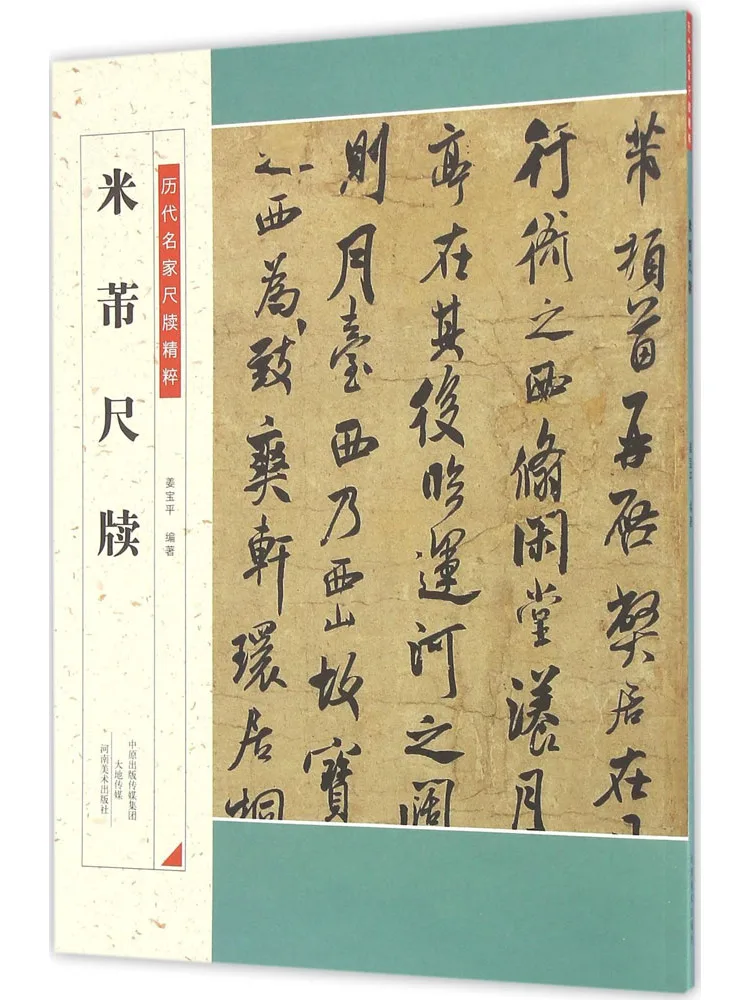 历代名家尺牍精粹
米芾尺牍
姜宝平 编著
中原出版传媒集团
大地传媒
河南美术出版社
芾頓首再啓弊居在
行衙之西翛閑堂漾月
亭在其後臨運河之闊
則月臺西乃西山故寶
之西為致爽軒環居桐